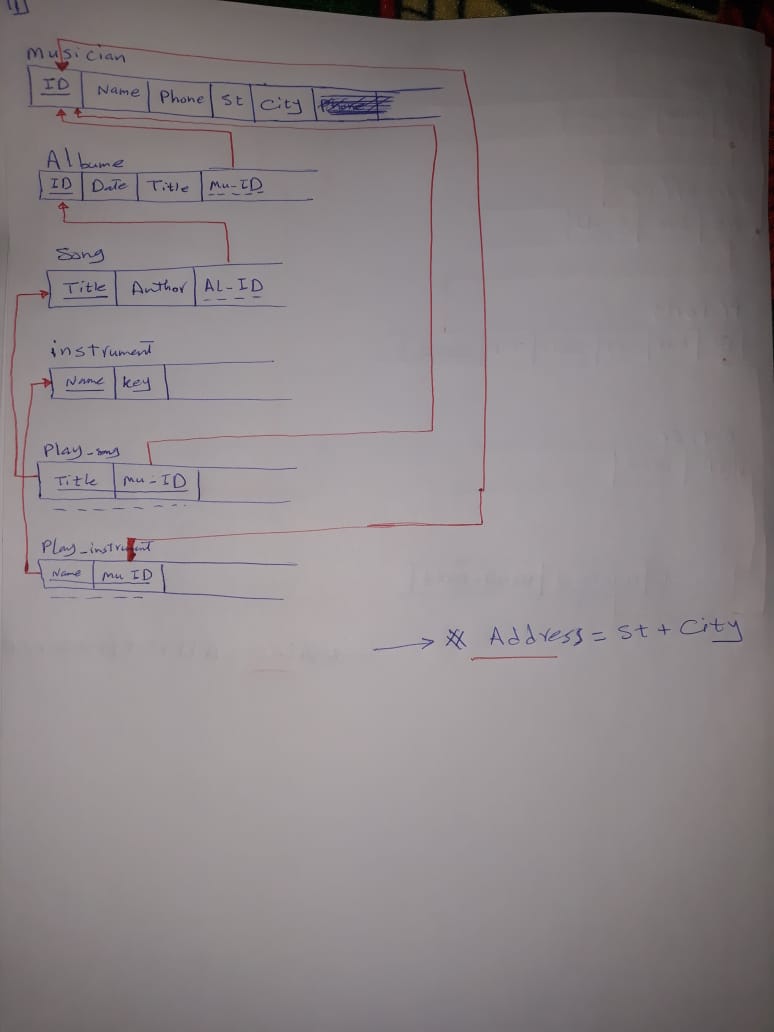 1]
Musician
ID Name Phone St City
Albume
ID Date Title Mu-ID
Song
Title Author AL-ID
instrument
Name key
Play-song
Title mu-ID
Play-instrument
Name mu ID
→ ** Address = st + City